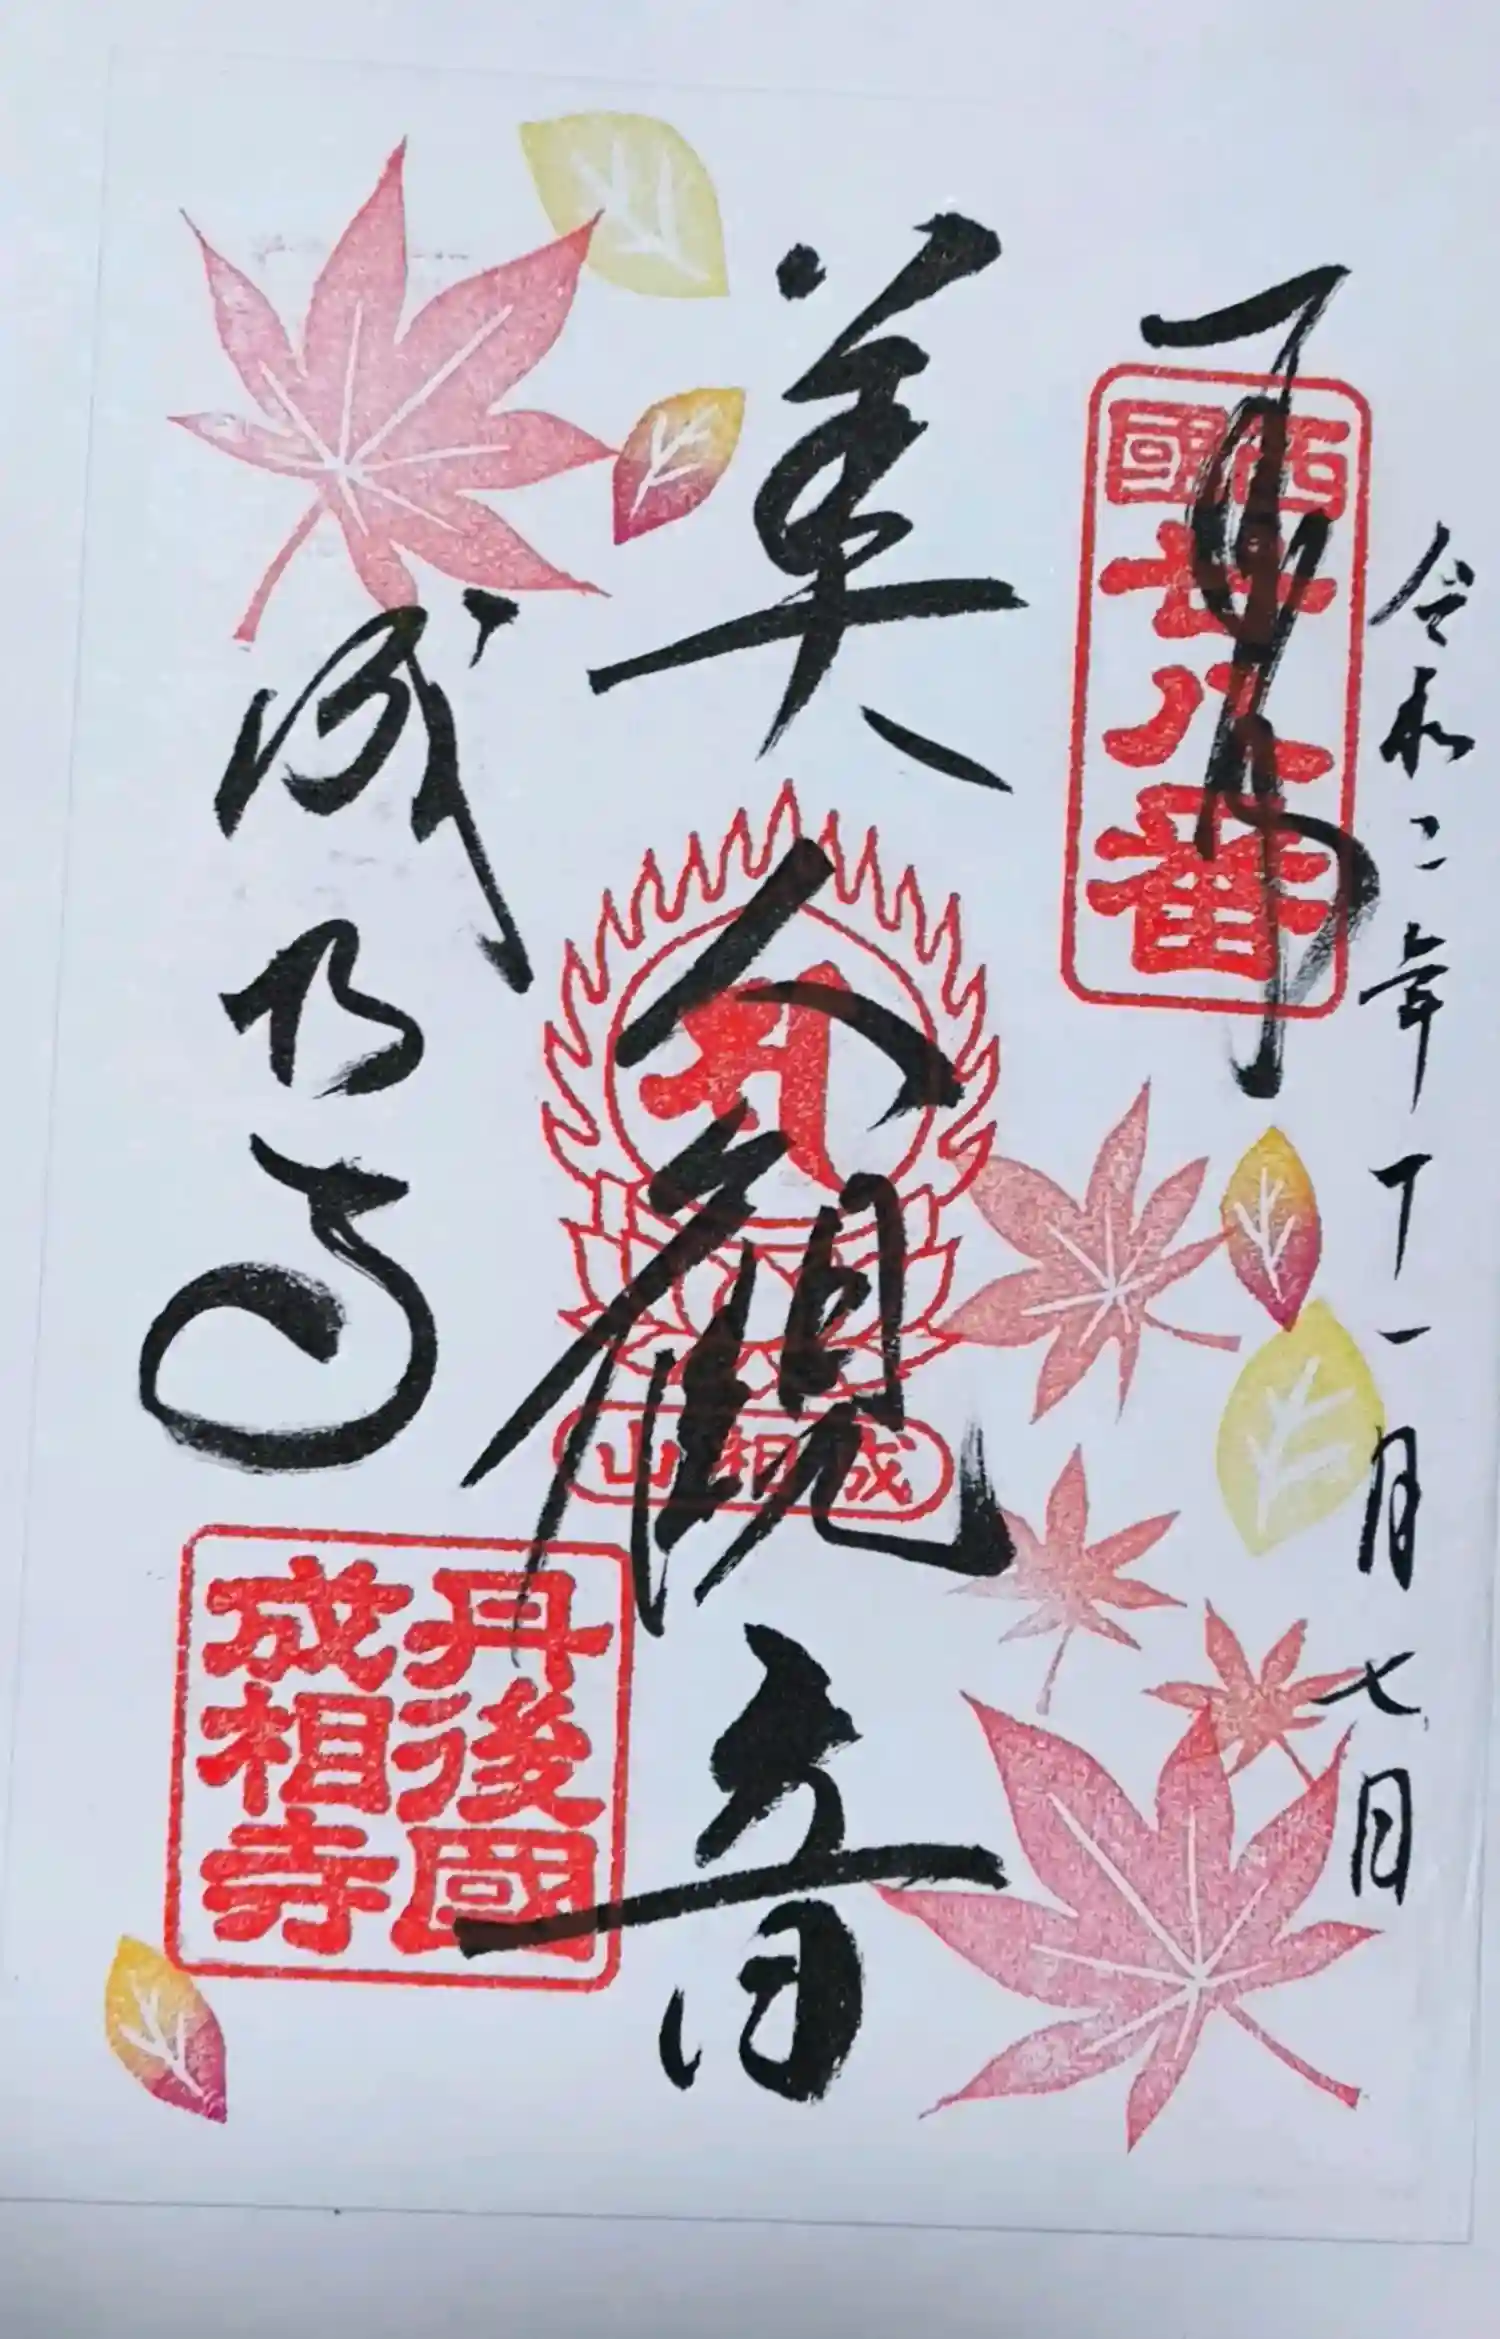 令和二年十一月七日
奉拝
西國
廿八番
美人觀音
成相山
成相寺
丹後國
成相寺